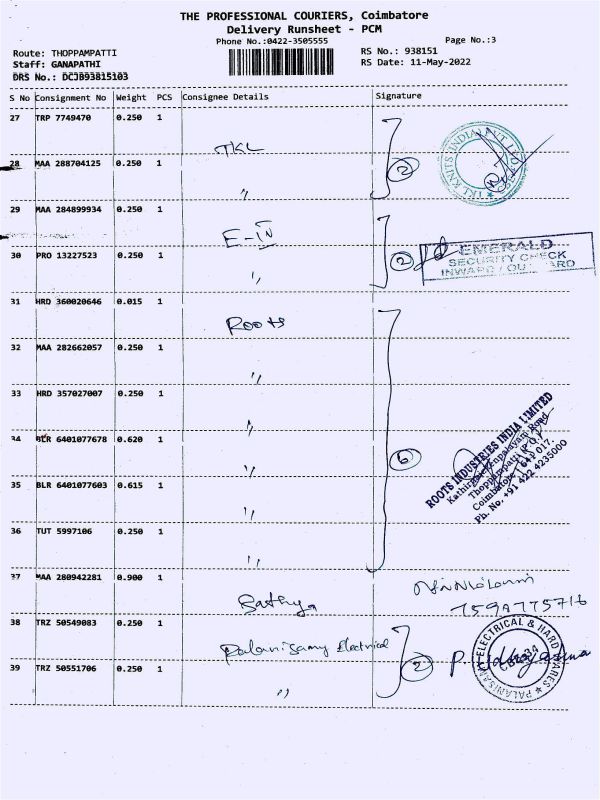 THE PROFESSIONAL COURIERS, Coimbatore
Delivery Runsheet - PCM
Phone No.:0422-3505555
Page No.:3
Route: THOPPAMPATTI
RS No.: 938151
Staff: GANAPATHI
RS Date: 11-May-2022
DRS No.: DCJB93815103
S No Consignment No Weight PCS Consignee Details Signature
27 TRP 7749470 0.250 1
TKL
28 MAA 288704125 0.250 1
2
TKL KNITS INDIA PVT LTD
〃
29 MAA 284899934 0.250 1
E-IV
30 PRO 13227523 0.250 1
2
EMERALD
SECURITY CHECK
〃
31 HRD 360020646 0.015 1
Roots
32 MAA 282662057 0.250 1
〃
33 HRD 357027007 0.250 1
〃
34 BLR 6401077678 0.620 1
6
ROOTS INDUSTRIES INDIA LIMITED
Thoppampatti (P.O)
Coimbatore - 641 017.
Ph. No. +91 422 4235000
〃
35 BLR 6401077603 0.615 1
〃
36 TUT 5997106 0.250 1
〃
37 MAA 280942281 0.900 1
Sathya
38 TRZ 50549083 0.250 1
Palanisamy Electrical
2
PALANISAMY ELECTRICAL & HARDWARES
39 TRZ 50551706 0.250 1
〃